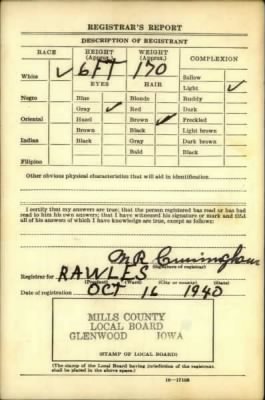 REGISTRAR'S REPORT
DESCRIPTION OF REGISTRANT
RACE HEIGHT (Approx.) WEIGHT (Approx.) COMPLEXION
White ✓ 6FT 170 Sallow
EYES HAIR Light ✓
Negro Blue Blonde Ruddy
Gray ✓ Red Dark
Oriental Hazel Brown ✓ Freckled
Brown Black Light brown
Indian Black Gray Dark brown
Bald Black
Filipino
Other obvious physical characteristics that will aid in identification
I certify that my answers are true; that the person registered has read or has had
read to him his own answers; that I have witnessed his signature or mark and that
all of his answers of which I have knowledge are true, except as follows:
M R Cunningham
(Signature of registrar)
Registrar for RAWLES
(Precinct) (Ward) (City or county) (State)
Date of registration OCT 16 1940
MILLS COUNTY
LOCAL BOARD
GLENWOOD IOWA
(STAMP OF LOCAL BOARD)
(The stamp of the Local Board having jurisdiction of the registrant
shall be placed in the above space.)